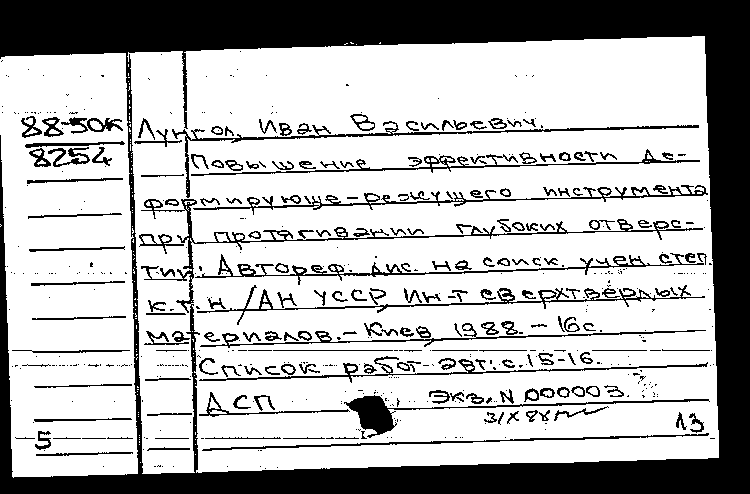 88-50К Лунгол, Иван Васильевич.
8254 Повышение эффективности де-
формирующе-режущего инструмента
при протягивании глубоких отверс-
тий: Автореф. дис. на соиск. учен. степ.
к.т.н / АН УССР, Ин-т сверхтвердых
материалов. - Киев, 1988. - 16с.
Список работ авт: с. 15-16.
ДСП Экз. N 000003.
31/X 88г
5 13